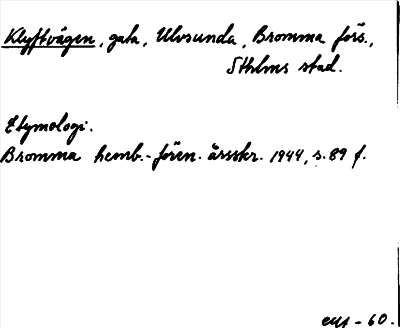 Klyftvägen, gata, Ulvsunda, Bromma förs.,
Sthlms stad.
Etymologi.
Bromma hemb.-fören. årsskr. 1944, s. 89 f.
-60.